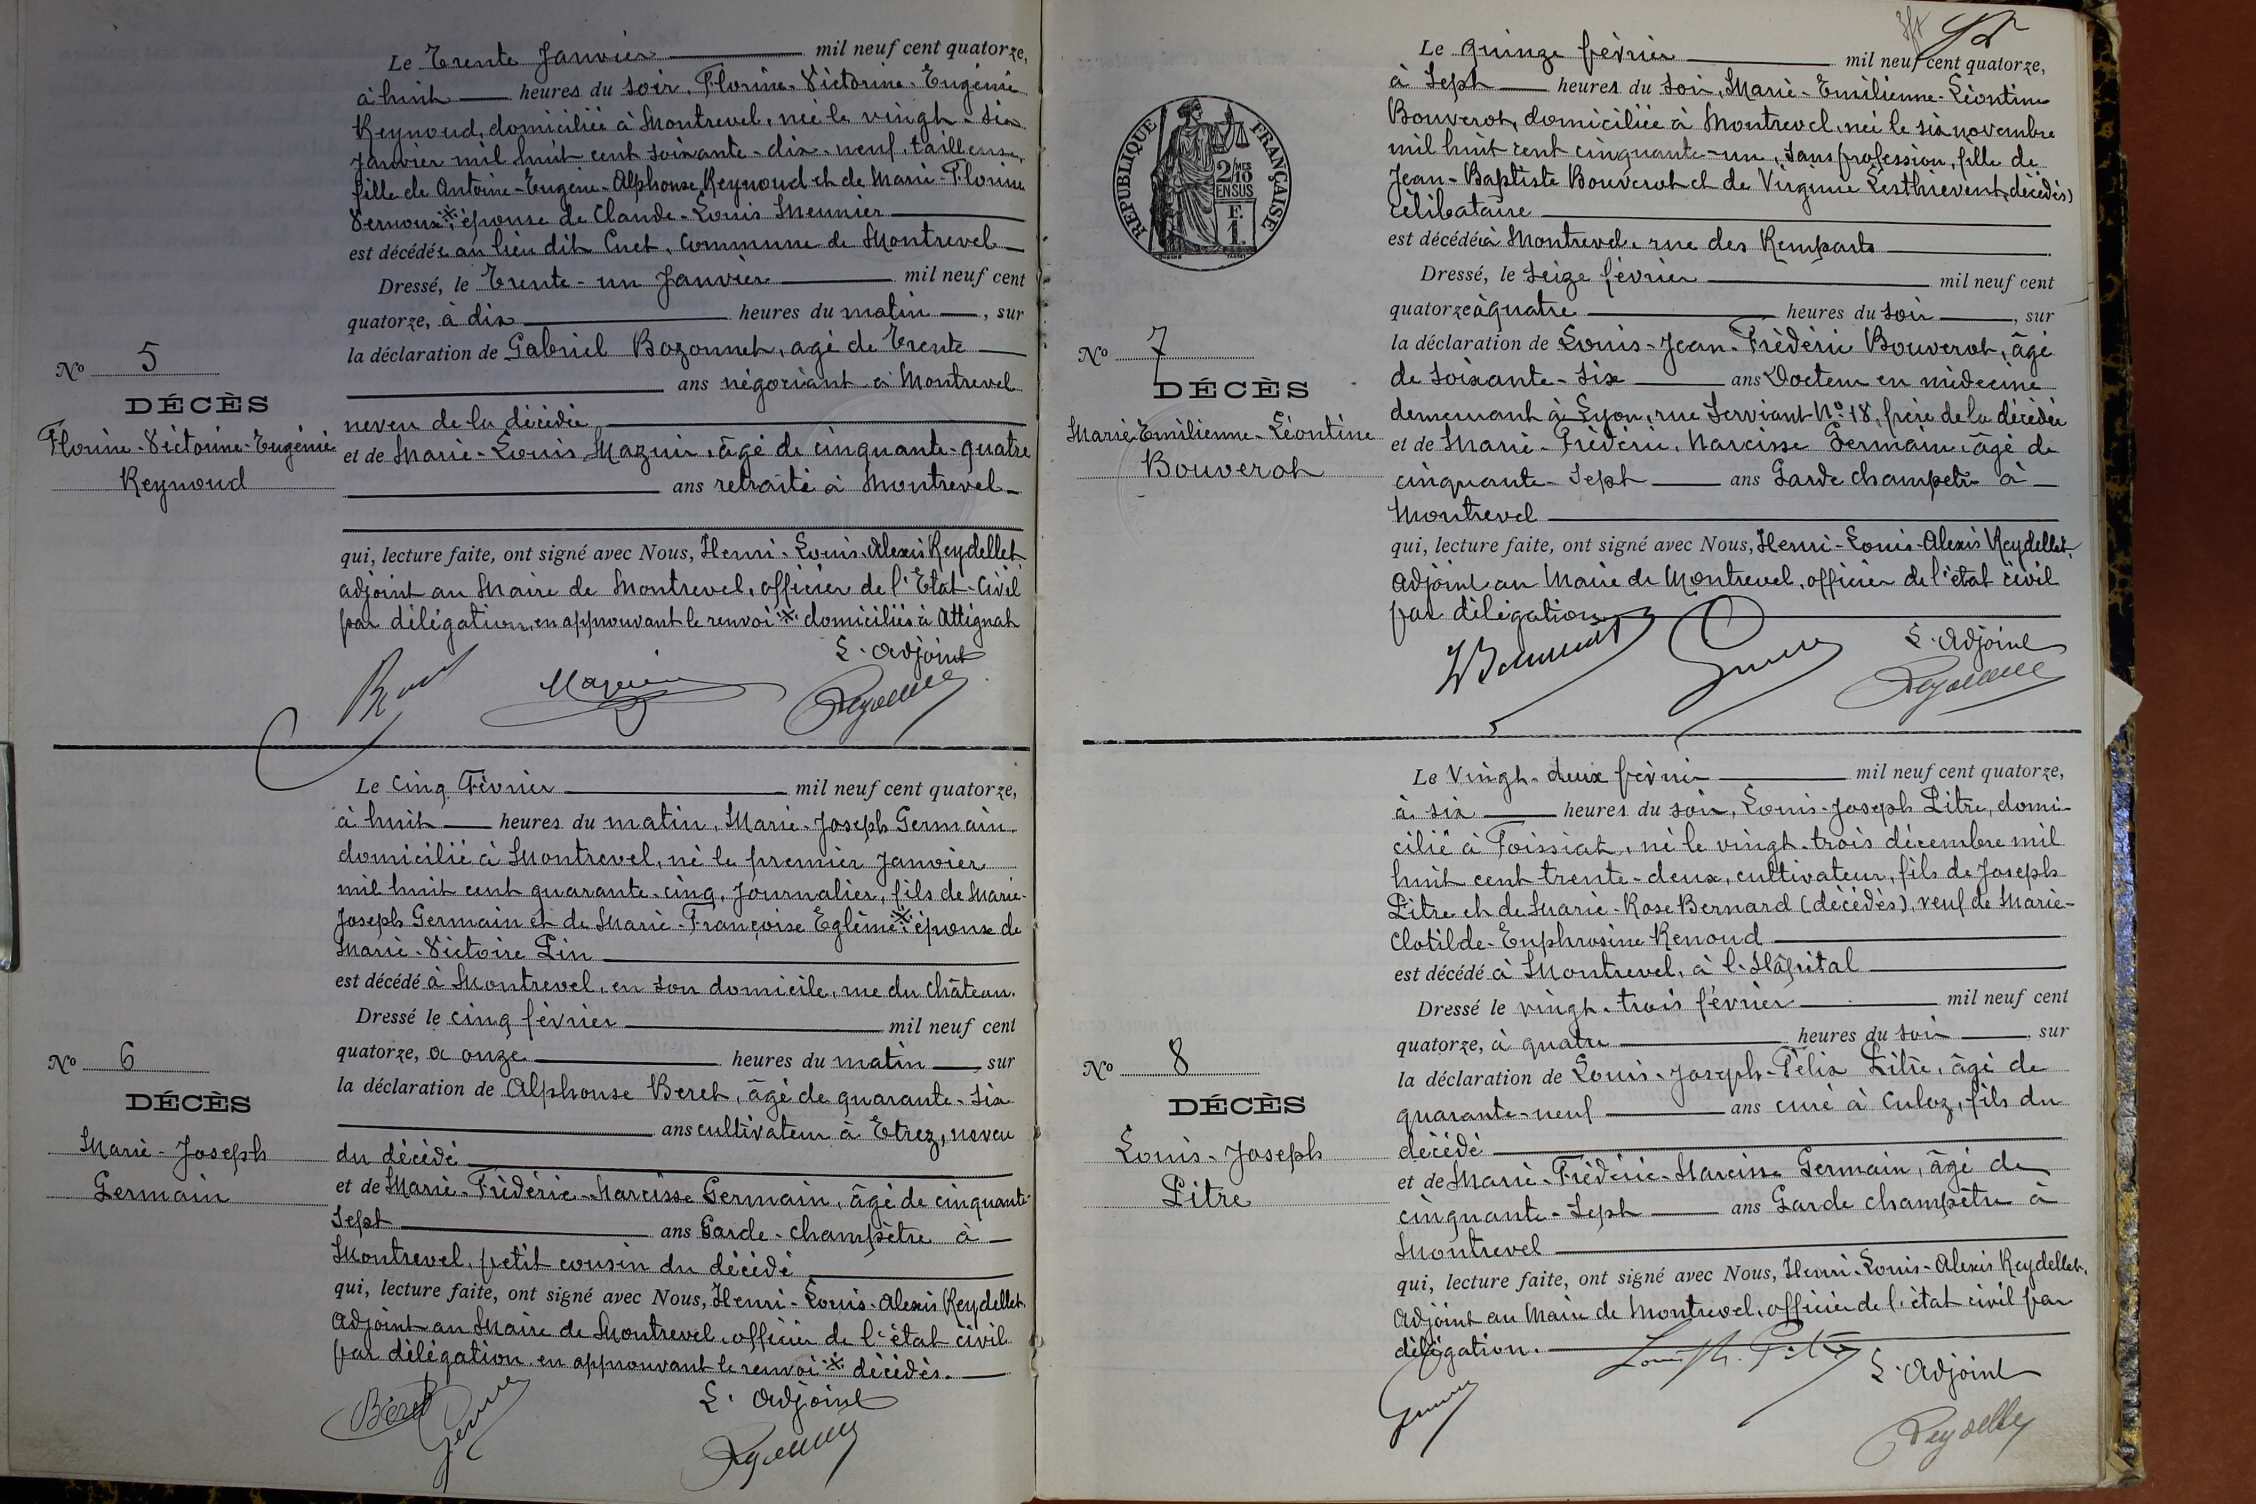 Le Trente Janvier mil neuf cent quatorze,
à huit heures du soir, Florine-Victorine-Eugénie
Reynoud, domiciliée à Montrevel, née le vingt-six
Janvier mil huit cent soixante-dix-neuf, tailleuse,
fille de Antoine-Eugène-Alphonse Reynoud et de Marie-Florine
Vernoux ※, épouse de Claude-Louis Meunier
est décédée au lieu dit Cuet, commune de Montrevel
Dressé, le Trente-un Janvier mil neuf cent
quatorze, à dix heures du matin, sur
la déclaration de Gabriel Bozonnet, agé de Trente
ans négociant à Montrevel
neveu de la décédée
et de Marie-Louis Mazuir, âgé de cinquante-quatre
ans retraité à Montrevel
qui, lecture faite, ont signé avec Nous, Henri-Louis-Alexis Reydellet
adjoint au Maire de Montrevel, officier de l'Etat-Civil
par délégation, en approuvant le renvoi ※ domiciliés à Attignat
L'adjoint
Nº 5
DÉCÈS
Florine-Victorine-Eugénie
Reynoud
Le Cinq Février mil neuf cent quatorze,
à huit heures du matin, Marie-Joseph Germain
domicilié à Montrevel, né le premier Janvier
mil huit cent quarante-cinq, Journalier, fils de Marie-
Joseph Germain et de Marie-Françoise Eglème ※, époux de
Marie-Victoire Pin
est décédé à Montrevel, en son domicile, rue du Château.
Dressé le cinq février mil neuf cent
quatorze, a onze heures du matin, sur
la déclaration de Alphonse Beret, âgé de quarante-six
ans cultivateur à Etrez, neveu
du décédé
et de Marie-Frédéric-Narcisse Germain, âgé de cinquante-
Sept ans Garde-champêtre à
Montrevel, petit cousin du décédé
qui, lecture faite, ont signé avec Nous, Henri-Louis-Alexis Reydellet
Adjoint au Maire de Montrevel, officier de l'état civil
par délégation en approuvant le renvoi ※ décédés.
Béret
L'adjoint
Nº 6
DÉCÈS
Marie-Joseph
Germain
Le quinze février mil neuf cent quatorze,
à Sept heures du soir, Marie-Emilienne-Léontine
Bouverot, domiciliée à Montrevel, née le six novembre
mil huit cent cinquante-un, sans profession, fille de
Jean-Baptiste Bouverot et de Virginie Lesthievent, (décédés)
célibataire
est décédée à Montrevel, rue des Remparts
Dressé, le Seize février mil neuf cent
quatorze à quatre heures du soir, sur
la déclaration de Louis-Jean-Frédéric Bouverot, âgé
de soixante-six ans Docteur en médecine
demeurant à Lyon, rue Servient Nº 18, frère de la décédée
et de Marie-Frédéric, Narcisse Germain, âgé de
cinquante-Sept ans Garde champetre à
Montrevel
qui, lecture faite, ont signé avec Nous, Henri-Louis-Alexis Reydellet,
adjoint au Maire de Montrevel, officier de l'état civil
par délégation
L'adjoint
RÉPUBLIQUE FRANÇAISE
2/10 MES
EN SUS
F.
1.
Nº 7
DÉCÈS
Marie-Emilienne-Léontine
Bouverot
Le Vingt-deux février mil neuf cent quatorze,
à six heures du soir, Louis-Joseph Pitre, domi-
cilié à Foissiat, né le vingt-trois décembre mil
huit cent trente-deux, cultivateur, fils de Joseph
Pitre et de Marie-Rose Bernard (décédés), veuf de Marie-
Clotilde-Euphrosine Renoud
est décédé à Montrevel, à l'Hôpital
Dressé le vingt-trois février mil neuf cent
quatorze, à quatre heures du soir, sur
la déclaration de Louis-Joseph-Félix Pitre, âgé de
quarante-neuf ans curé à Culoz, fils du
décédé
et de Marie-Frédéric-Narcisse Germain, âgé de
cinquante-Sept ans Garde champêtre à
Montrevel
qui, lecture faite, ont signé avec Nous, Henri-Louis-Alexis Reydellet,
Adjoint au Maire de Montrevel, officier de l'état civil par
délégation.
L'adjoint
Reydellet
Nº 8
DÉCÈS
Louis-Joseph
Pitre